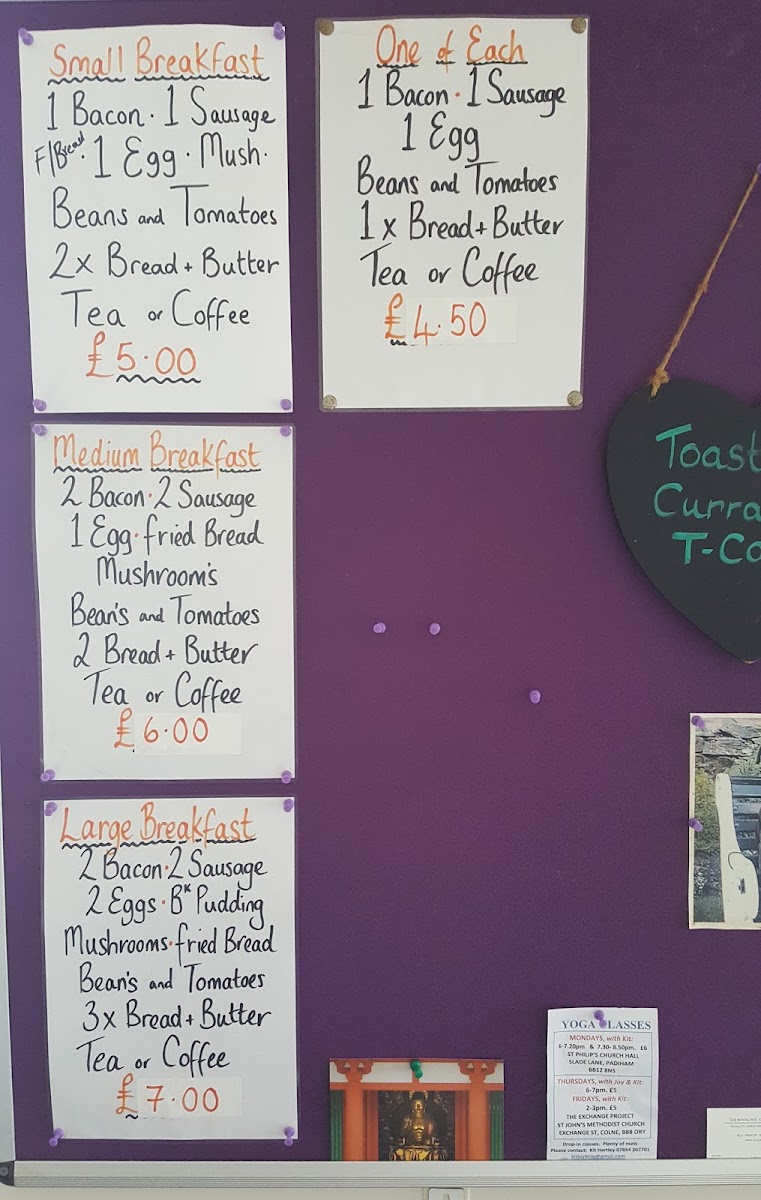 Small Breakfast
1 Bacon · 1 Sausage
F/Bread · 1 Egg · Mush ·
Beans and Tomatoes
2x Bread + Butter
Tea or Coffee
£5·00
One of Each
1 Bacon · 1 Sausage
1 Egg
Beans and Tomatoes
1x Bread + Butter
Tea or Coffee
£4.50
Medium Breakfast
2 Bacon · 2 Sausage
1 Egg · fried Bread
Mushroom's
Bean's and Tomatoes
2 Bread + Butter
Tea or Coffee
£6·00
Large Breakfast
2 Bacon · 2 Sausage
2 Eggs · Bᵏ Pudding
Mushrooms · fried Bread
Bean's and Tomatoes
3x Bread + Butter
Tea or Coffee
£7·00
Toast
Curra
T-Co
YOGA CLASSES
MONDAYS, with Kit:
6-7.20pm & 7.30- 8.50pm. £6
ST PHILIP'S CHURCH HALL
SLADE LANE, PADIHAM
BB12 8NS
THURSDAYS, with Joy & Kit:
6-7pm. £5
FRIDAYS, with Kit:
2-3pm. £5
THE EXCHANGE PROJECT
ST JOHN'S METHODIST CHURCH
EXCHANGE ST, COLNE, BB8 0RY
Drop-in classes. Plenty of mats
Please contact: Kit Hartley 07854 207701